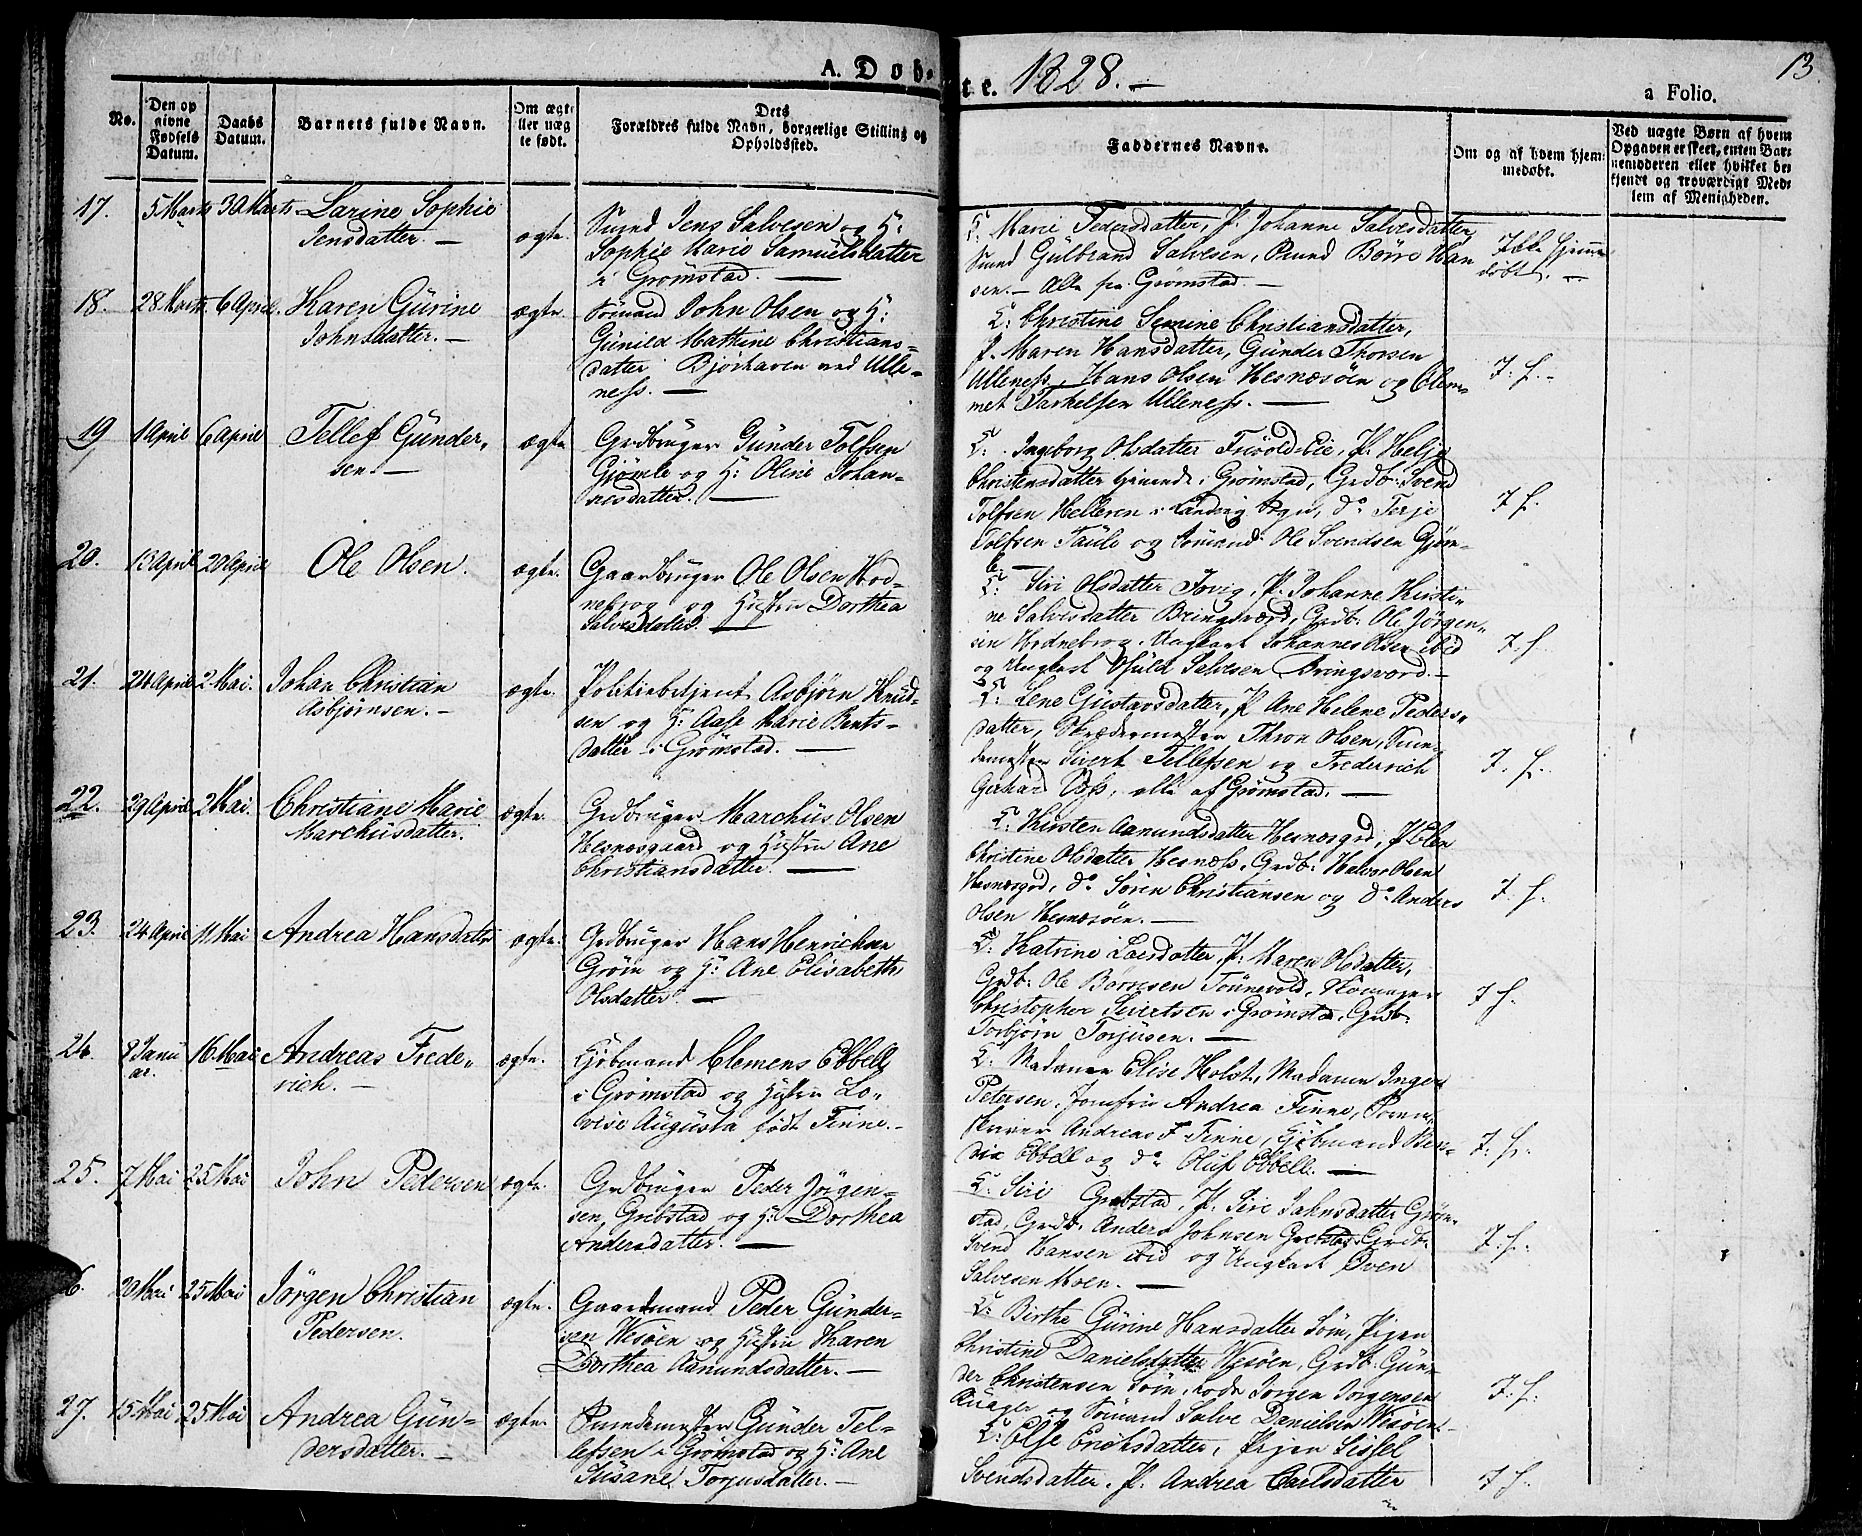 A. Døb-
te. 1828. -
13.
a Folio.
No.
Den op
givne
Fødsels
Datum.
Daabs
Datum.
Barnets fulde Navn.
Om ægte
eller uæg
te født.
Dets
Forældres fulde Navn, borgerlige Stilling og
Opholdssted.
Faddernes Navne.
Om og af hvem hjem-
medøbt.
Ved uægte Børn af hvem
Opgaven er skeet, enten Bar-
nemoderen eller hvilket be
kjendt og troværdigt Med-
lem af Menigheden.
17. 5 Marts 30 Marts Larine Sophie
Jensdatter. -
ægte.
Smed Jens Salvesen og H:
Sophie Marie Samuelsdatter
i Grømstad. -
Marie Pedersdatter, P. Johanne Salvesdatter
Smed Gulbrand Salvesen, Børre Han
sen. - Alle fra Grømstad. -
Ikke hjemme
døbt. -
18. 28 Marts 6 April. Karen Gurine
Johnsdatter. -
ægte.
Sømand John Olsen og H:
Gunild Mathine Christians-
datter Bjørhaven ved Ulle-
ness. -
Christine Semine Christiansdatter,
P. Maren Hansdatter, Gunder Thorsen
Ulleness, Hans Olsen Hesnæsøen og Clem-
met Tarkelsen Ulleness. -
I. H. -
19 1 April 6 April Tellef Gunder-
sen. -
ægte
Grdbruger Gunder Tolfsen
Gjømle og H: Oline Johan-
nesdatter. -
Ingeborg Olsdatter Frivoldeie, P. Helje
Christensdatter tjenende i Grømstad, Grdb: Svend
Tolfsen Helleren i Landvig Sogn, do Terje
Tolfsen og Sømand Ole Svendsen Gjøm-
le. -
I H.
20. 13 April 20 April Ole Olsen.
ægte.
Gaardbruger Ole Olsen Hod-
nebrog og Hustru Dorthea
Salvesdatter. -
Siri Olsdatter P. Johanne Kirsti-
ne Salvesdatter Bringsværd, Grdb: Ole Jørgen-
sen Hodnebrog, Ungkarl Johannes Olsen ibid
og Ungkarl Salvesen Bringsverd. -
I. H.
21. 24 April 2 Mai. Johan Christian
Asbjørnsen. -
ægte.
Politiebetjent Asbjørn Knud-
sen og H: Aase Marie Bents-
datter i Grømstad. -
Lene Gustavsdatter, P Ane Helene Peders-
datter, Skrædermester Thron Olsen,
Sivert Tellefsen og Frederich
Gerhard Voss, alle af Grømstad. -
I. H.
22. 29 April 2 Mai. Christiane Marie
Marchusdatter.
ægte.
Grdbruger Marchus Olsen
Hesnesgaard og Hustru Ane
Christiansdatter. -
Kirsten Aanundsdatter Hesnesgrd, P Elen
Christine Olsdatter Hesness, Grdb: Halvor Olsen
Hesnesgrd, do Søren Christiansen og do Anders
Olsen Hesnesøen. -
I. H.
23. 24 April 11 Mai Andrea Hansdatter
ægte.
Grdbruger Hans Henrichsen
Grøm og H: Ane Elisabeth
Olsdatter. -
Katrine Larsdatter, P: Maren Olsdatter,
Grdb: Ole Børresen Tønnevold, Skomager
Christopher Sivertsen i Grømstad, Grdb:
Torbjørn Torjusen. -
I H.
24. 8 Janu
ar. 16. Mai Andreas Frede-
rich. -
ægte.
Kjøbmand Clemens Ebbell
i Grømstad og Hustru Lo-
vise Augusta født Finne. -
Madame Elise Holst, Madame Inger
Petersen, Jomfru Andrea Finne,
skriver Andreas F. Finne, Kjøbmand Ben-
dix Ebbell og do Oluf Ebbell. -
I. H.
25. 7 Mai 25 Mai John Pedersen
ægte.
Grdbruger Peder Jørgen-
sen Grebstad og H: Dorthea
Andersdatter. -
Siri Grebstad, P. Siri Jahnsdatter Grøm-
stad, Grdb: Anders Johnsen Grebstad, Grdb:
Svend Hansen ibid og Ungkarl Øven
Salvesen Moen. -
I. H.
6. 20 Mai 25 Mai Jørgen Christian
Pedersen.
ægte.
Gaardmand Peder Gunder-
sen Vesøen og Hustru Karen
Dorthea Aanundsdatter. -
Birthe Gurine Hansdatter Søm, Pigen
Christine Danielsdatter Vesøen, Grdb: Gun-
der Christensen Søm, Lods Jørgen Jørgensen
og Sømand Salve Danielsen Vesøen. -
I. H.
27. 15 Mai 25 Mai Andrea Gun-
dersdatter. -
ægte.
Smedemester Gunder Tel-
lefsen i Grømstad og H: Ane
Susane Torjusdatter. -
Else Erichsdatter, Pigen Sissel
Svendsdatter. P. Andrea Carlsdatter
I H.